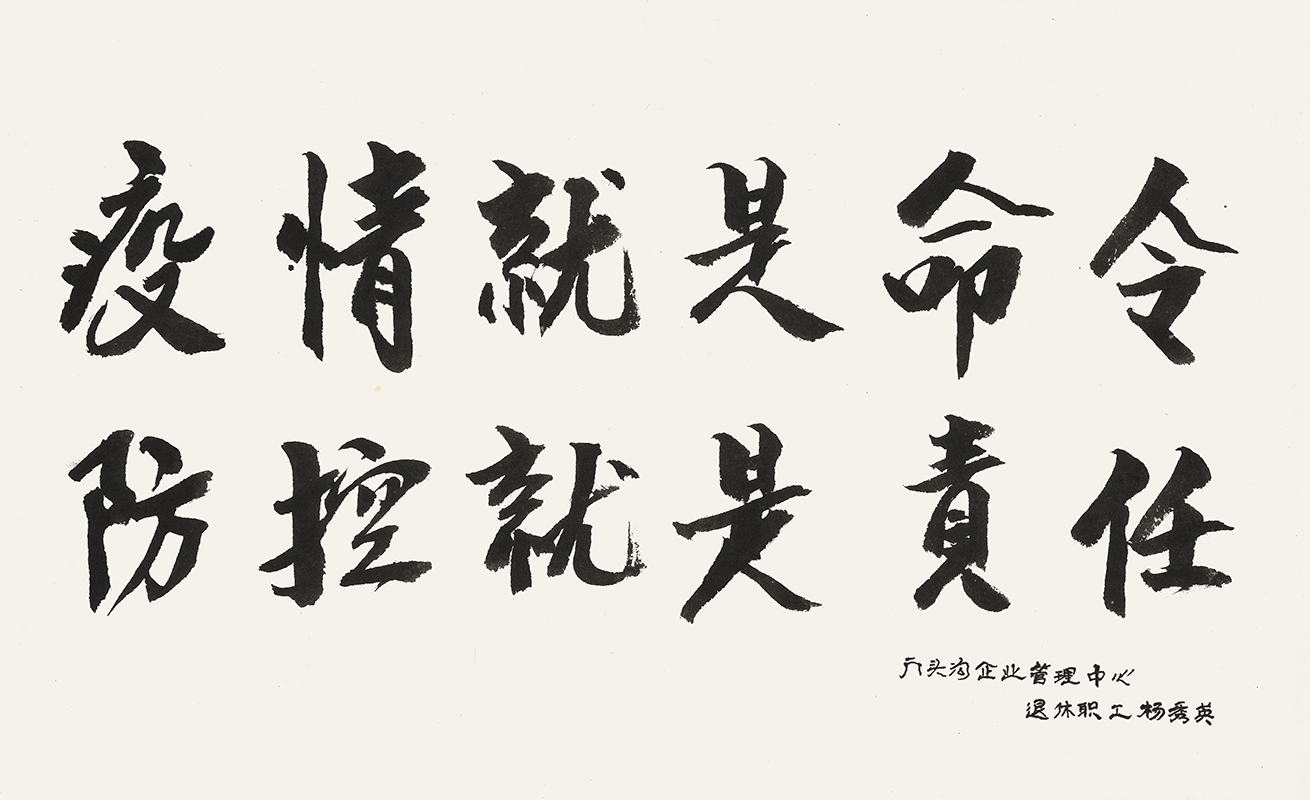 疫情就是命令
防控就是責任
门头沟企业管理中心
退休职工杨秀英